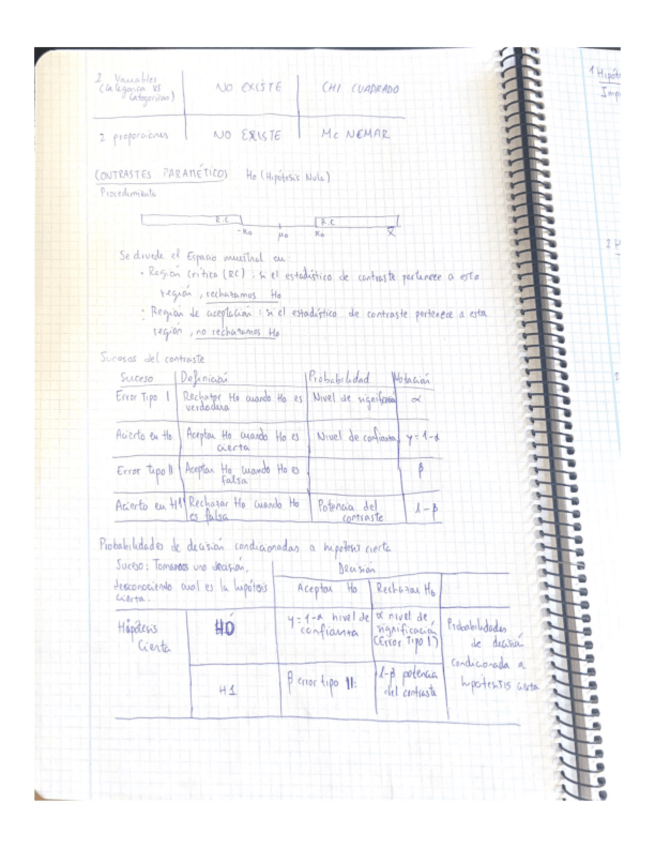 2 Variables
(Categorica vs
Categoricas)
NO EXISTE
CHI CUADRADO
2 proporciones
NO EXISTE
Mc NEMAR
CONTRASTES PARAMÉTICOS Ho (Hipótesis Nula)
Procedimiento
R.C
R.C
-Ko
μo
Ko
X̄
Se divide el Espacio muestral en
· Región Crítica (RC) : si el estadístico de contraste pertenece a esta
región, rechazamos Ho
· Región de aceptación : si el estadístico de contraste pertenece a esta
región, no rechazamos Ho
Sucesos del contraste
Suceso
Definición
Probabilidad
Notación
Error Tipo I
Rechazar Ho cuando Ho es
verdadera
Nivel de significa
α
Acierto en Ho
Aceptar Ho cuando Ho es
cierta
Nivel de confianza
γ = 1-α
Error tipo II
Aceptar Ho cuando Ho es
falsa
β
Acierto en H1
Rechazar Ho cuando Ho
es falsa
Potencia del
contraste
1-β
Probabilidades de decisión condicionadas a hipotesis cierta
Suceso: Tomamos una decisión,
desconociendo cual es la hipótesis
cierta.
Decisión
Aceptar Ho
Rechazar Ho
Hipótesis
Cierta
HO
γ = 1-α nivel de
confianza
α nivel de
significación
(Error Tipo I)
Probabilidades
de decisión
condicionada a
hipotesis cierta
H1
β error tipo II:
1-β potencia
del contraste
1 Hipót
Imp